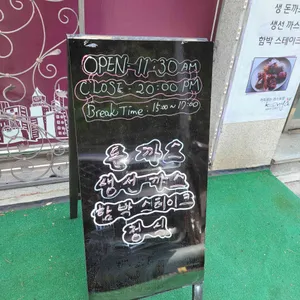 OPEN-11:30 AM
CLOSE-20:00 PM
Break Time: 15:00~17:00
돈 까스
생선 까스
함박 스테이크
정식
생 돈까스
생선 까스
함박 스테이크